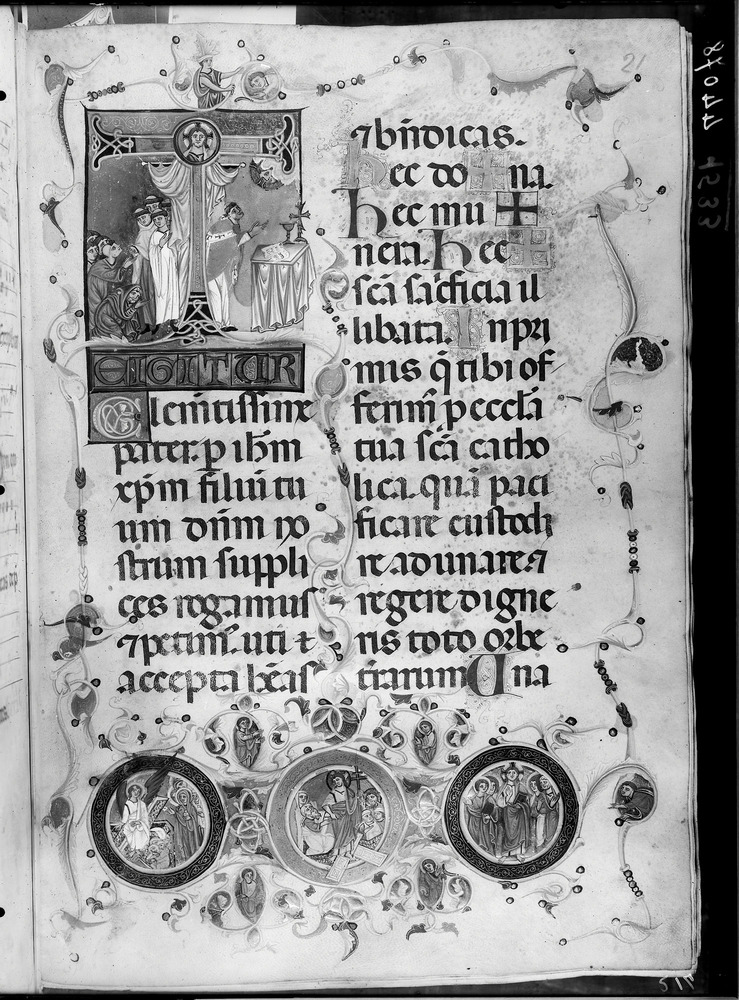 T
EIGITUR
Clemētissime
pater. p ihm
xpm filiū tu
um dnm no
strum suppli
ces rogamus
⁊ petim. uti ⁊
accepta habeas
⁊ bndicas.
hec do✠na.
hec mu✠
nera. hec✠
scā sacficia il
libata. Inpri
mis q̄ tibi of
ferim p eccla
tua scā catho
lica. quā paci
ficare custodi
re adunare ⁊
regere digne
ris toto orbe
trarum Una
21
87077
4533